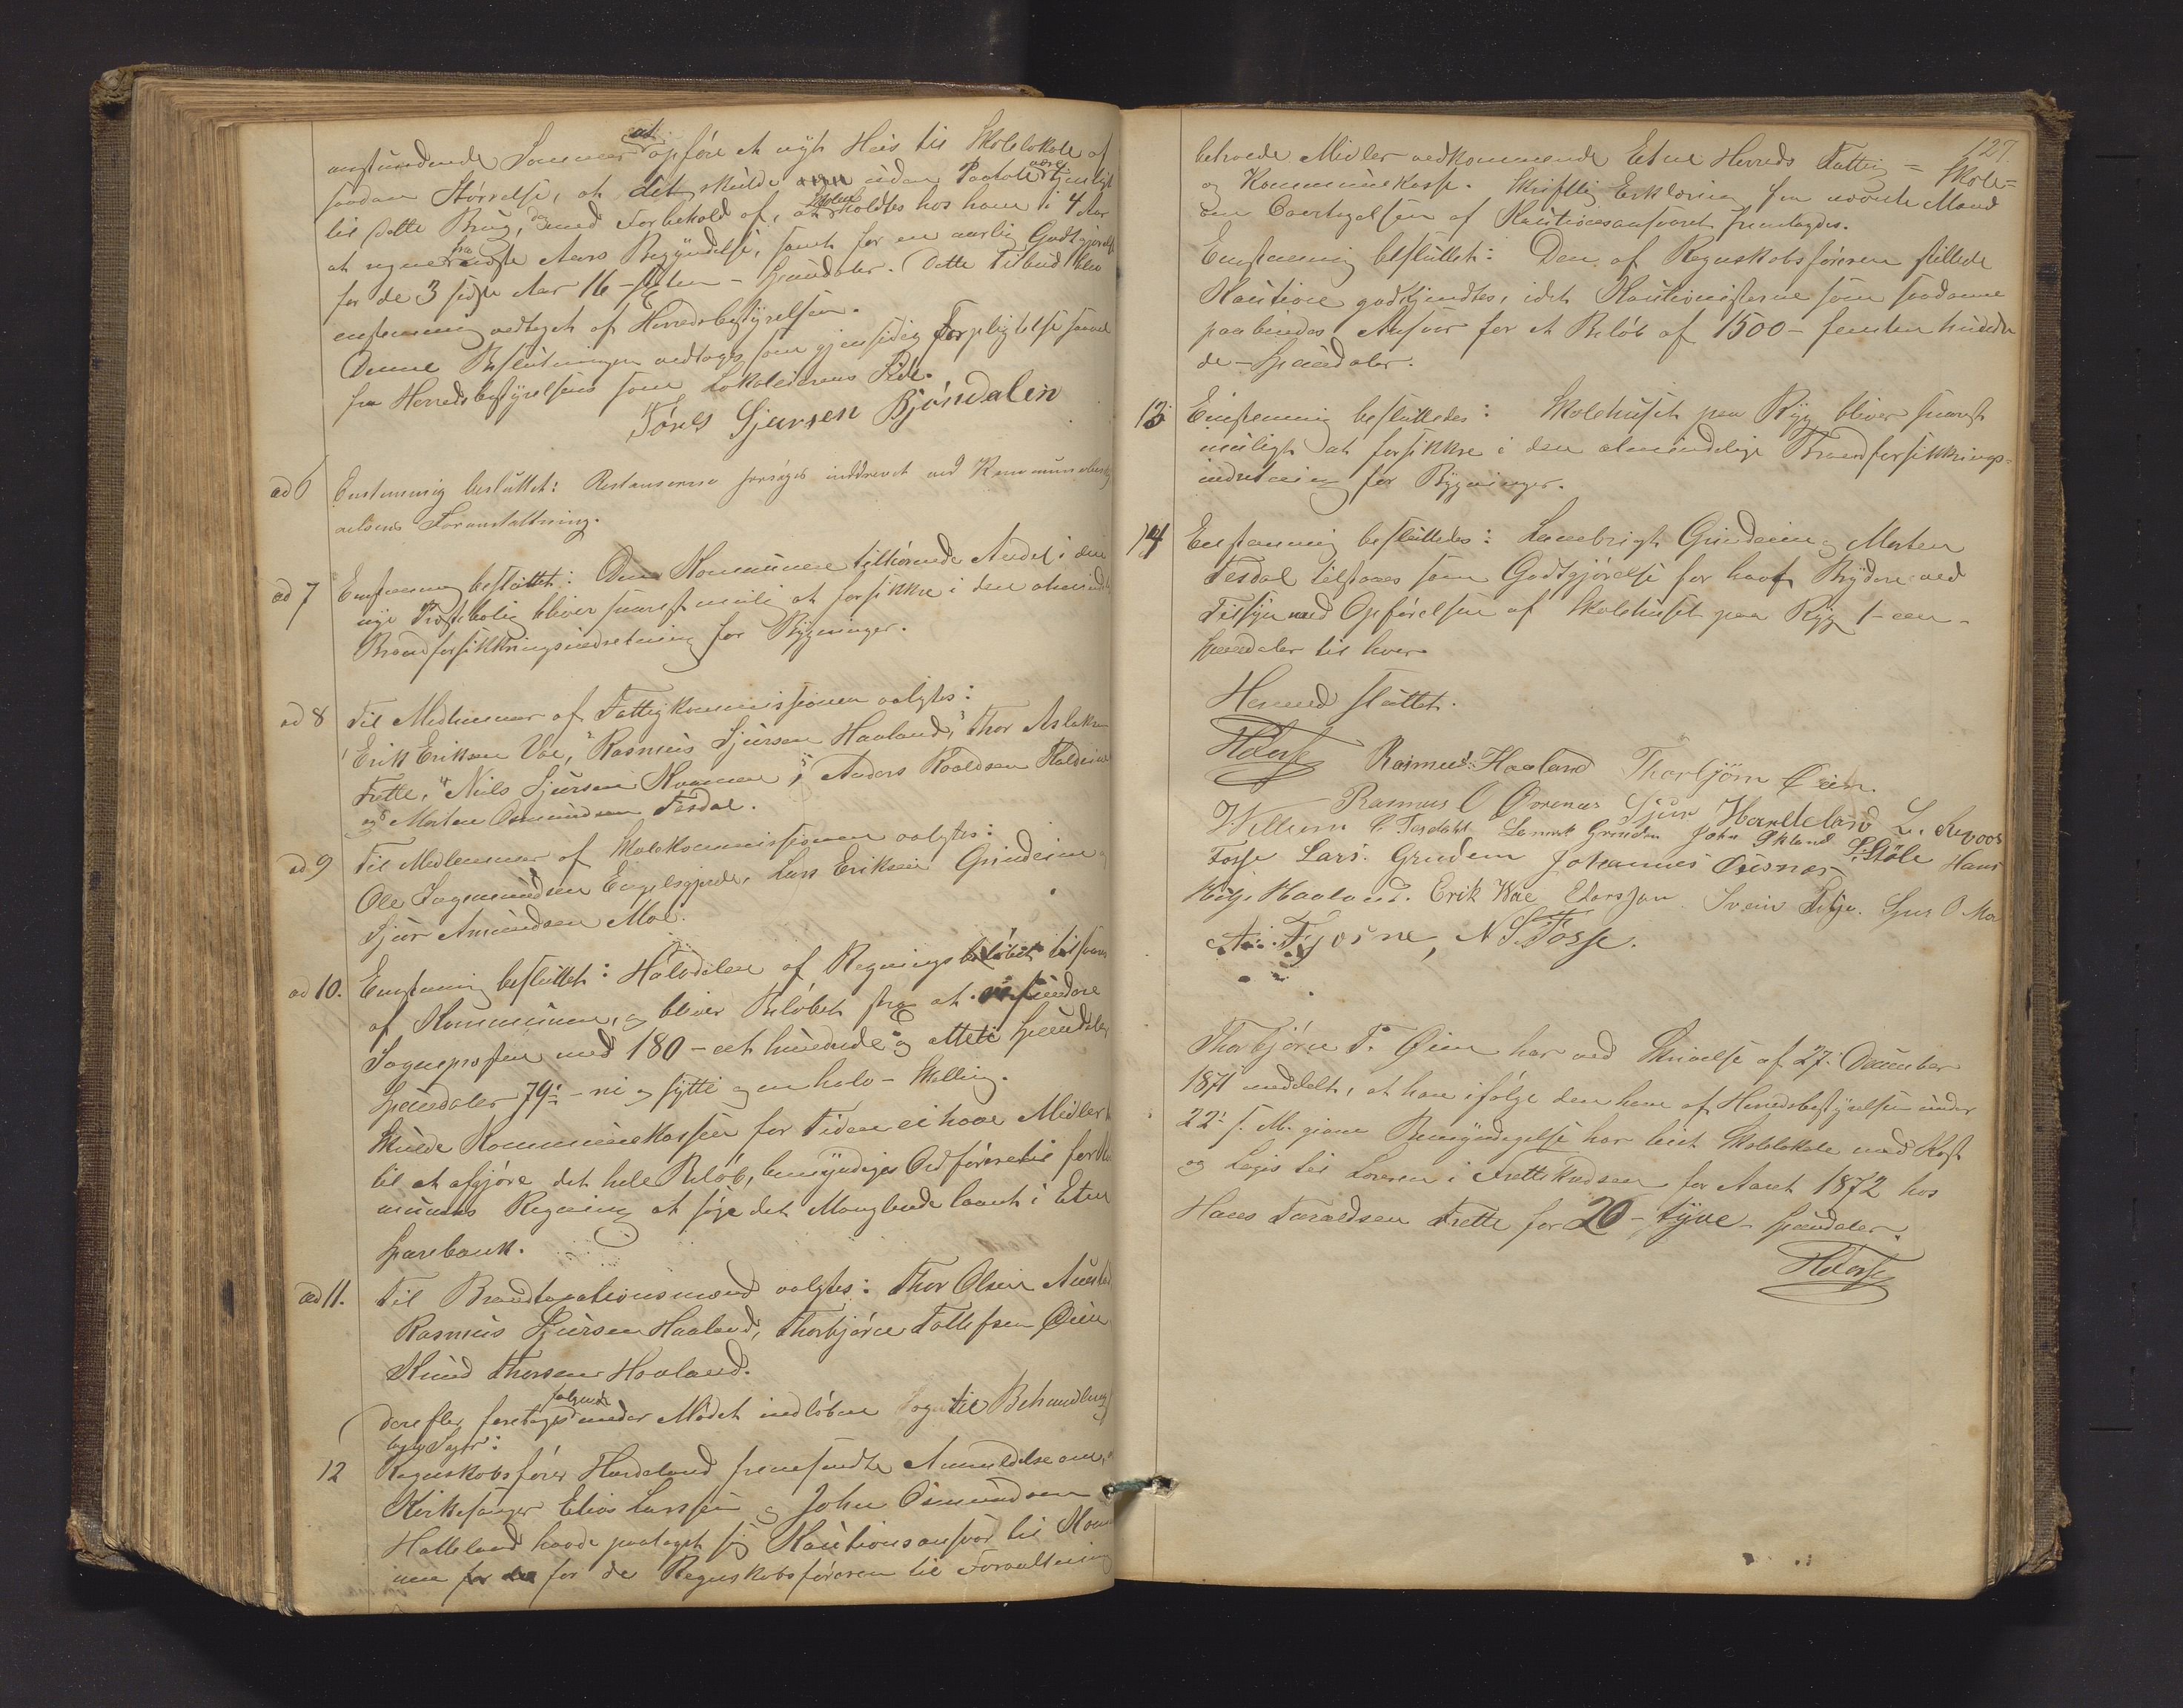 anstundende Sommer at opføre et nyt Huus til Skolelokale af
saadan Størrelse, at det skulde være uden Paatale tjenligt
til dette Brug, dog med Forbehold af, at Skolen holdtes hos ham i 4 Aar
at regne fra næste Aars Begyndelse, samt for en aarlig Godtgjørelse
for de 3 sidste Aar 16 - sexten - Speciedaler. Dette Tilbud blev
enstemmig vedtaget af Herredsbestyrelsen.
Denne Beslutningen vedtoges som gjensidig Forpligtelse saavel
fra Herredsbestyrelsens som Lokaleierens Side.
Tøres Sjursen Bjøndalen
ad 6 Enstemmig besluttet: Restanserne forsøges inddrevet ved Kommunebesty
relsens Foranstaltning.
ad 7 Enstemmig besluttet: Den Kommunen tilhørende Andel i den
nye Prostebolig bliver snarest mulig at forsikkre i den almindelige
Brandforsikkringsindretning for Bygninger.
ad 8 Til Medlemmer af Fattigkommissionen valgtes:
1 Erik Eriksen Vae, 2 Rasmus Sjursen Haaland, 3 Thor Aslaksen
Frette, 4 Niels Sjursen Kvamen, 5 Anders Roaldsen
og 6 Morten Osmundsen Tesdal.
ad 9 Til Medlemmer af Skolekommissionen valgtes:
Ole Ingemundsen Engelsgjerde, Lars Eriksen Grindeim og
Sjur Amundsen Moe.
ad 10. Enstemmig besluttet: Halvdelen af Regningsbeløbet tilsvares
af Kommunen, og bliver Beløbet strax at refundere
Sogneprosten med 180 - et hundrede og otteti Speciedaler
Speciedaler 79½ - ni og sytti og en halv - Skilling.
Skulde Kommunekassen for Tiden ei have Midler
til at afgjøre det hele Beløb, bemyndiges Ordføreren til for Kom
munens Regning at søge det Manglende laant i Etne
Sparebank.
ad 11. Til Brandtaxationsmænd valgtes: Thor Olsen
Rasmus Sjursen Haaland, Thorbjørn Tollefsen Øien
Knud Thorsen Haaland.
Derefter foretoges følgende under Mødet indløbne og til Behandling
lagte Sager:
12 Regnskabsfører Hardeland fremsendte Anmeldelse om, at
Kirkesanger Elias Larssen og John Osmundsen
Halleland havde paataget sig Kautionsansvar til Kommu
nen for de for de Regnskabsføreren til Forvaltning
127.
betroede Midler vedkommende Etne Herreds Fattig- Skole-
og Kommunekasse. Skriftlig Erklæring fra nævnte Mænd
om Overtagelsen af Kautionsansvaret fremlagdes.
Enstemmig besluttet: Den af Regnskabsføreren stillede
Kaution godkjendtes, idet Kautionisterne som saadanne
paabindes Ansvar for et Beløb af 1500 - femten hundre
de - Speciedaler.
13 Enstemmig besluttedes: Skolehuset paa Ryg bliver snarest
muligt at forsikkre i den almindelige Brandforsikkrings-
indretning for Bygninger.
14 Enstemmig besluttedes: Lambrigt Grindeim og Morten
Tesdal tilstaaes som Godtgjørelse for havt Bryderi ved
Tilsyn med Opførelsen af Skolehuset paa Ryg 1 - een -
Speciedaler til hver.
Hermed sluttet.
Rasmus Haaland Thorbjørn Øien.
Rasmus O Øvrenæs Sjur Hardeland L.
Villum O. Tesdahl Lambrik Grindem John Økland L. Støle Hans
Fosse Lars Grindem Johannes Osnes
Helje Haaland. Erik Vae E Larssen. Svein Silje. Sjur O Moe
A. Fjosne, N S. Fosse.
Thorbjørn T. Øien har ved Skrivelse af 27. December
1871 meddelt, at han ifølge den ham af Herredsbestyrelsen under
22. s. M. givne Bemyndigelse har leiet Skolelokale med Kost
og Logis til Læreren i Frettekredsen for Aaret 1872 hos
Hans Taraldsen Frette for 20 - tyve - Speciedaler.